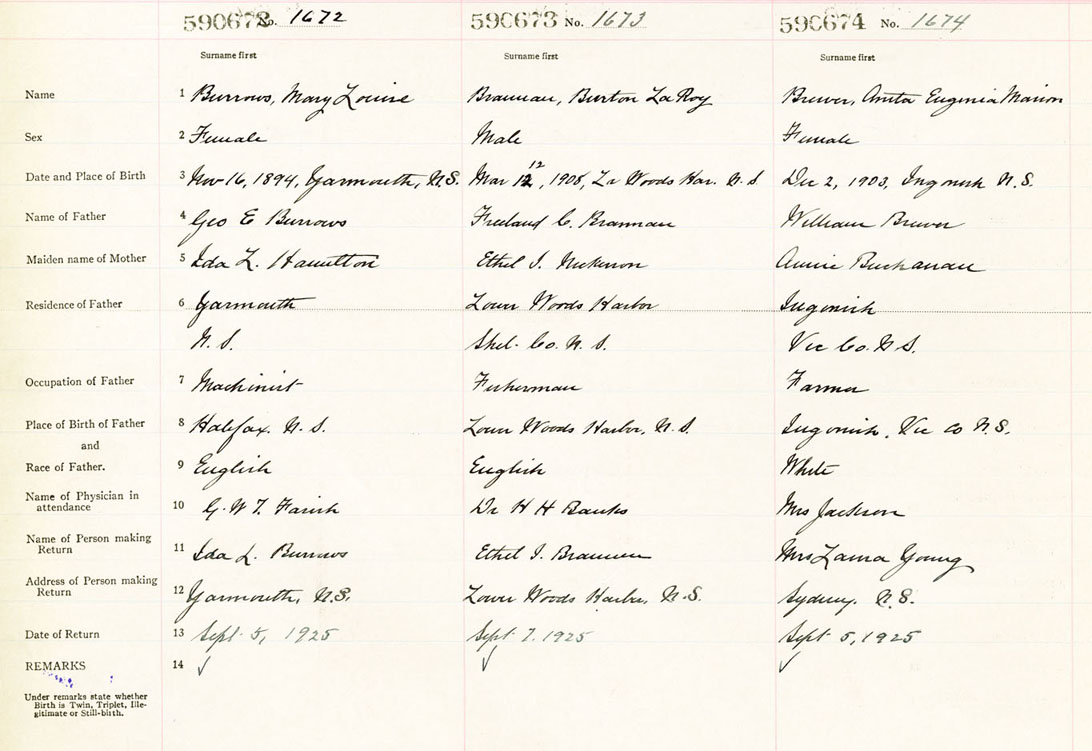 590672 No. 1672 590673 No. 1673 590674 No. 1674
Surname first Surname first Surname first
Name 1 Burrows, Mary Louise Brannan, Burton LaRoy Brewer, Anita Eugenia Marion
Sex 2 Female Male Female
Date and Place of Birth 3 Nov 16, 1894, Yarmouth, N.S. Mar 12, 1908, Lr Woods Har. N.S. Dec 2, 1903, Ingonish N.S.
Name of Father 4 Geo E Burrows Freeland C. Brannan William Brewer
Maiden name of Mother 5 Ida L. Hamilton Ethel I. Nickerson Annie Buchanan
Residence of Father 6 Yarmouth Lower Woods Harbor Ingonish
N.S. Shel. Co. N.S. Vic Co. N.S.
Occupation of Father 7 Machinist Fisherman Farmer
Place of Birth of Father 8 Halifax. N.S. Lower Woods Harbor, N.S. Ingonish, Vic Co N.S.
and
Race of Father. 9 English English White
Name of Physician in
attendance 10 G.W.T. Farish Dr H H Banks Mrs Jackson
Name of Person making
Return 11 Ida L. Burrows Ethel I. Brannan Mrs Young
Address of Person making
Return 12 Yarmouth, N.S. Lower Woods Harbor, N.S. Sydney. N.S.
Date of Return 13 Sept 5, 1925 Sept 7. 1925 Sept 5, 1925
REMARKS 14 ✓ ✓ ✓
Under remarks state whether
Birth is Twin, Triplet, Ille-
gitimate or Still-birth.